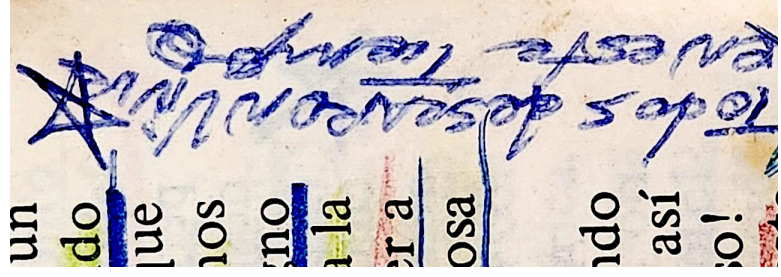 Todos desean
en este Tiempo
un
do
que
nos
gno
a la
er a
osa
ndo
así
so!